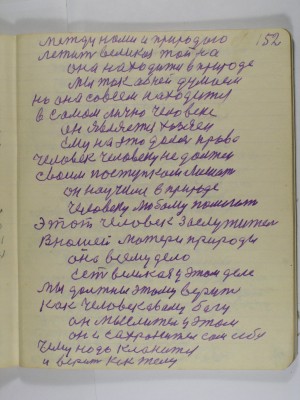 152
между нами и природаю
лежит великая тайна
она находится в природе
мы так абней думаем
но она совсем находится
в самом лично человеке
он является хозяен
ему на это дали право
человек человеку не должен
своим поступком мешат
он научился в природе
человеку любому помогат
этот человек заслужител
в нашей матери природи
она всему дело
есть великая у этом деле
мы должны этому верит
как человековому богу
он мыслител у этом
он и сахранител сам себи
чему надо кланится
и верит как телу